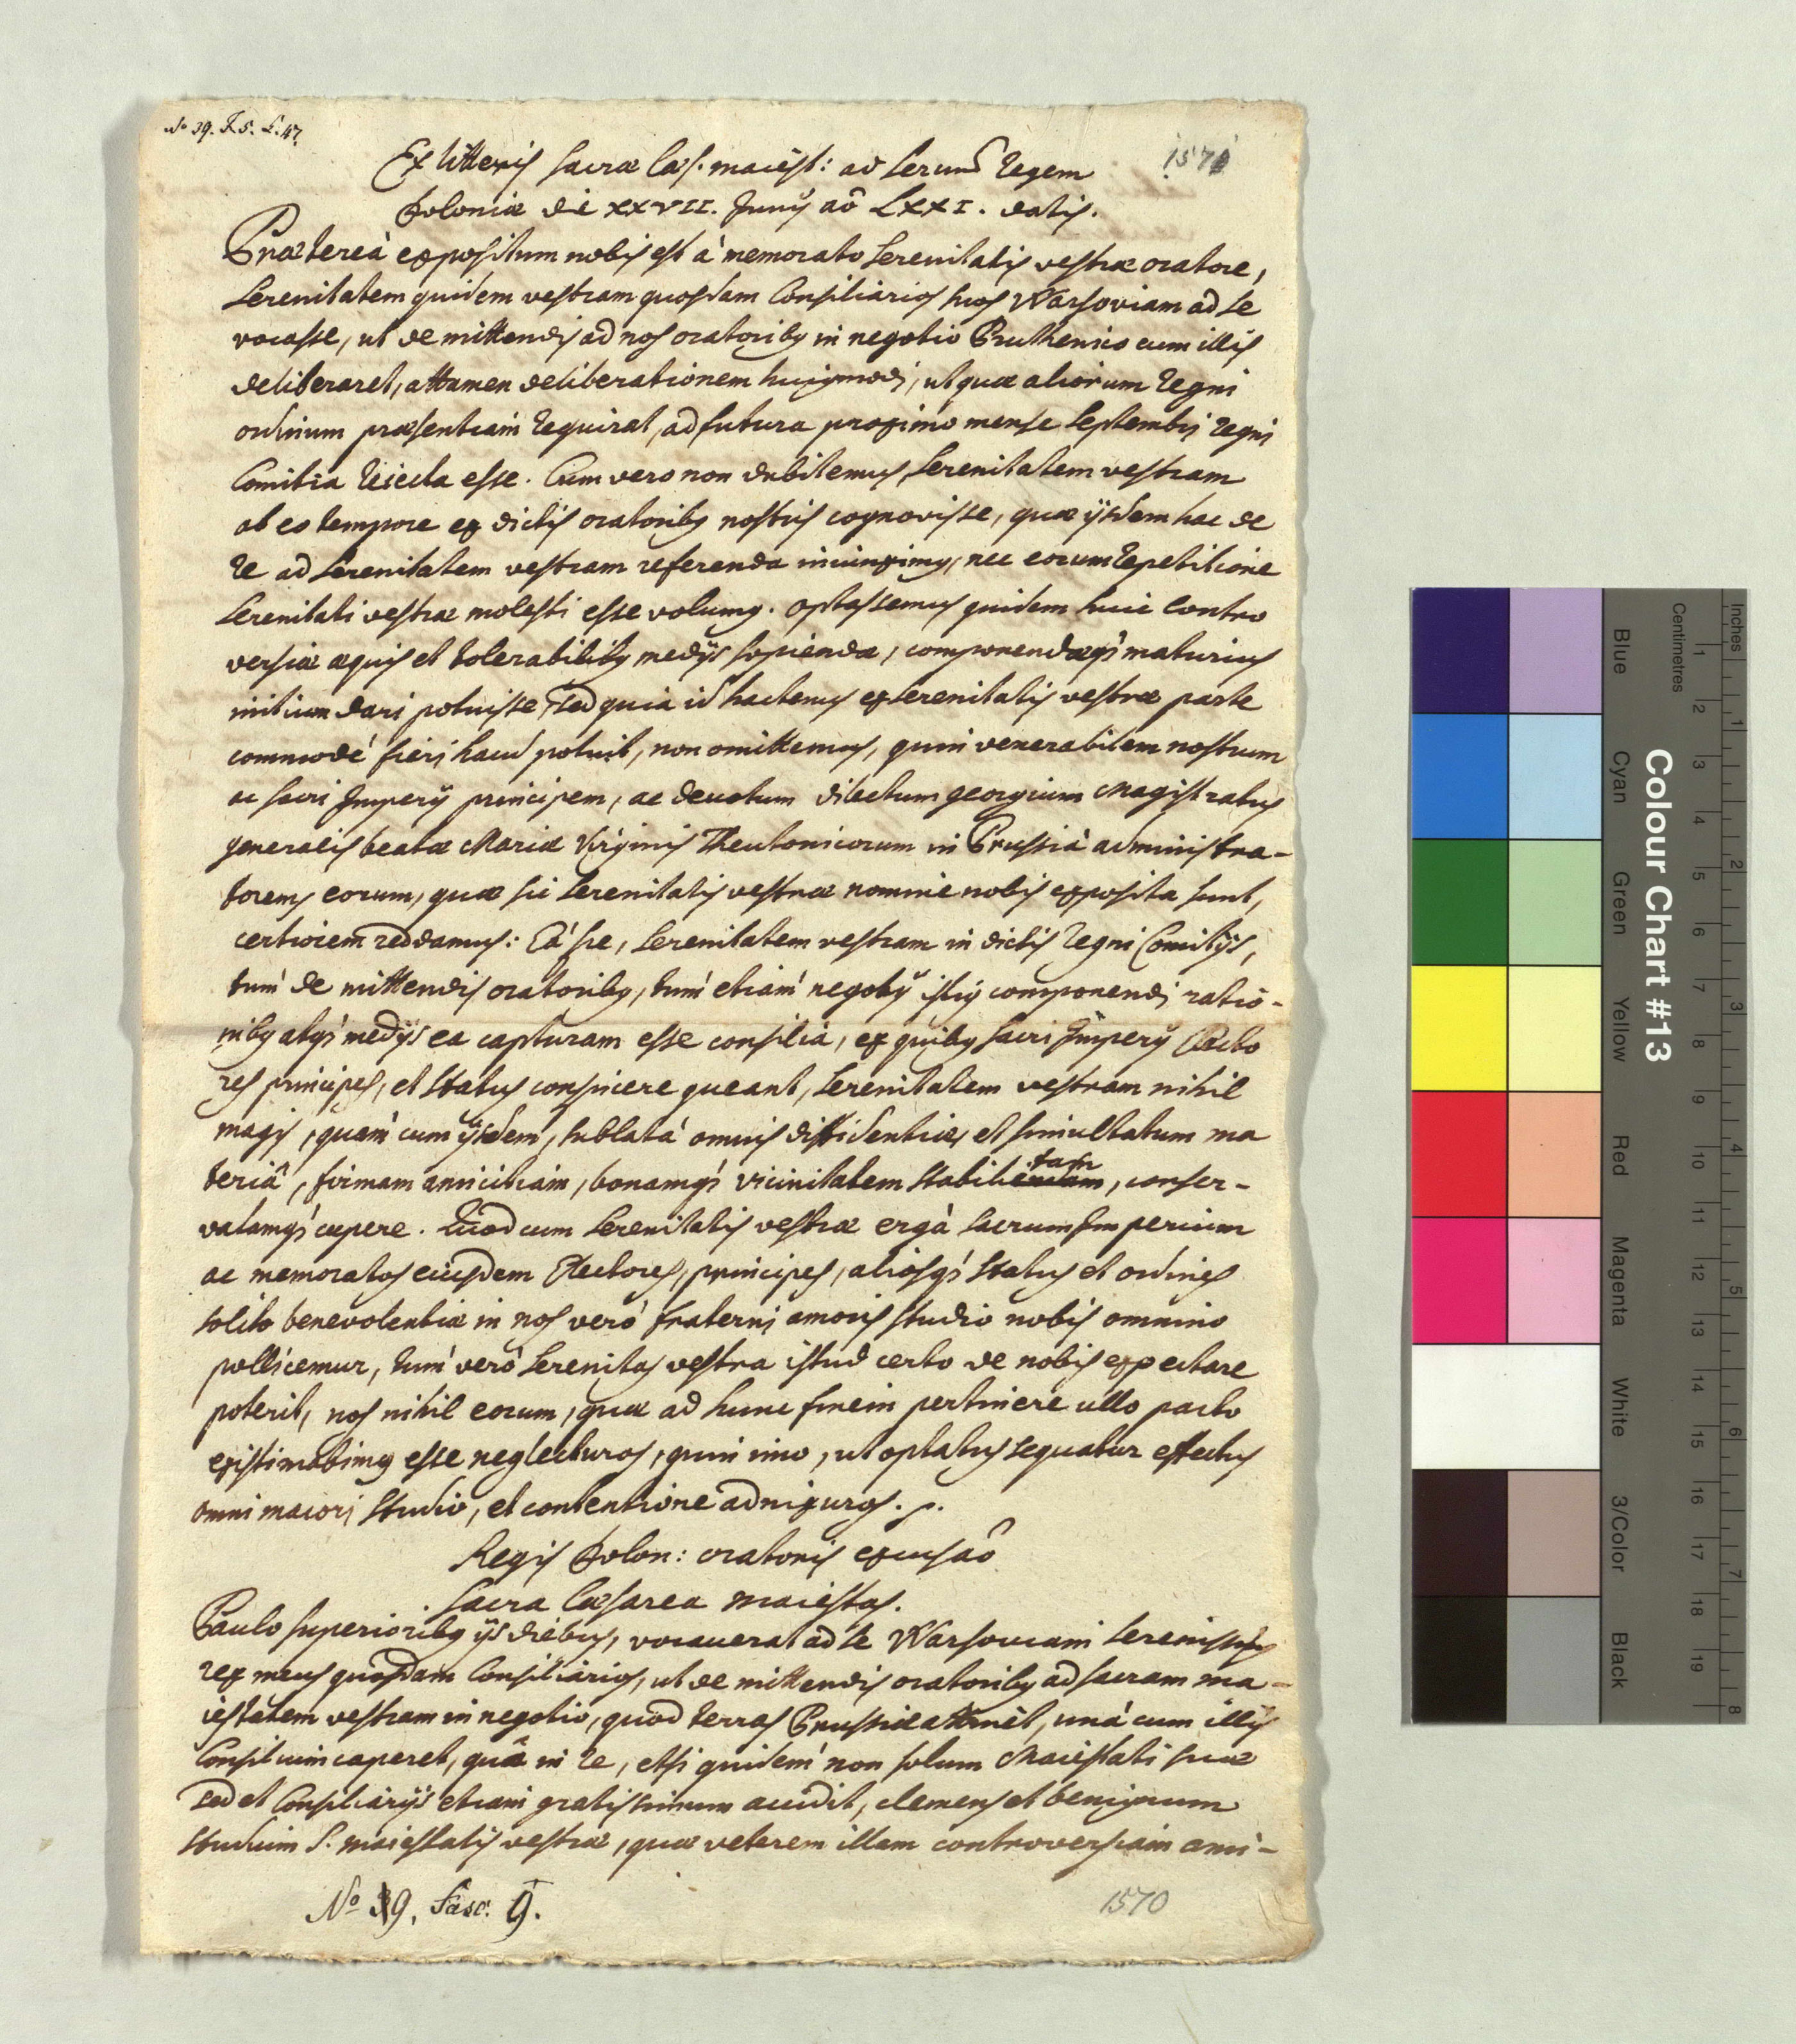 No 39. F. 5. L. 47.
1571
Ex litteris Sacræ Cæs. maiest: ad Serum Regem
Poloniæ de XXVII. Junÿ aô LXXI. datis.
Prætereà expositum nobis est à memorato Serenitatis vestræ oratore,
Serenitatem quidem vestram quosdam Consiliarios suos Warsoviam ad se
vocasse, ut de mittendis ad nos oratoribg in negotio Pruthenico cum illis
deliberaret, attamen deliberationem huigmodi, ut quæ aliorum Regni
ordinum præsentiam requirat, ad futura proximo mense Septembri Regni
Comitia reiecta esse. Cum vero non dubitemus, Serenitatem vestram
ab eo tempore ex dictis oratoribg nostris cognovisse, quæ ijsdem hac de
re ad Serenitatem vestram referenda iniunximg, nec eorum repetitione
Serenitati vestræ molesti esse volumg. Optassemus quidem huic Contro
versiæ æquis et tolerabilibg medÿs sopiendæ, componendæq; maturius
initium dari potuisse, Sed quia id hactenus ex Serenitatis vestræ parte
commodè fieri haud potuit, non omittemus, quin venerabilem nostrum
ac Sacri Imperÿ principem, ac devotum dilectum Georgium Magistratus
generalis beatæ Mariæ Virginis Theutonicorum in Prussia administra-
torem, eorum, quæ sic Serenitatis vestræ nomine nobis exposita sunt,
certiorem reddamus: Eá spe, Serenitatem vestram in dictis Regni Comitÿs,
tùm de mittendis oratoribg, tùm etiàm negotÿ istig componendi ratio-
nibg atq; medÿs ea capturam esse consilia, ex quibg Sacri Imperÿ Electo
res principes, et Status conspicere queant, Serenitatem vestram nihil
magis, quàm cum ÿsdem, sublatá omnis diffidentiæ, et simultatum ma
teriâ, firmam amicitiam, bonamq; vicinitatem stabilitam, conser-
vatamq; cupere. Quod cum Serenitatis vestræ ergà Sacrum Imperium
ac memoratos eiusdem Electores, principes, aliosq; Status et ordines
solito benevolentiæ in nos verò fraterni amoris studio nobis omnino
pollicemur, tùm verò Serenitas vestra istud certo de nobis expectare
poterit, nos nihil eorum, quæ ad hunc finem pertinere ullo pacto
existimabimg esse neglecturos, quin imo, ut optatus sequatur effectus
omni maiori studio, et contentione adnixuros. p.
Regis Polon: oratoris excusaô
Sacra Cæsarea maiestas.
Paulo superioribg ÿs diebus, vocaverat ad se Warsoviam Serenissimus
rex meus quosdam Consiliarios, ut de mittendis oratoribg ad sacram ma-
iestatem vestram in negotio, quod terras Prussiæ attinet, unà cum illis
Consilium caperet, quâ in re, etsi quidem non solum Maiestati suæ
sed et Consiliarÿs etiam gratissimum accidit, clemens et benignum
studium S. maiestatis vestræ, quæ veterem illam controversiam ami-
No 39. Fasc. 9.
1570